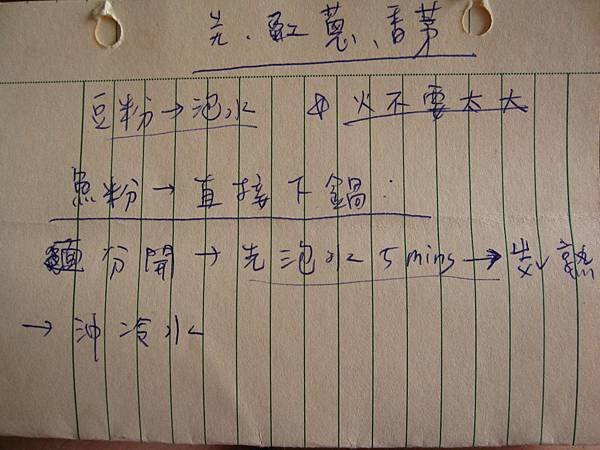 先、紅蔥、香茅
豆粉→泡水 火不要太大
魚粉→直接下鍋:
麵分開→先泡水5mins→煮熟
→沖冷水